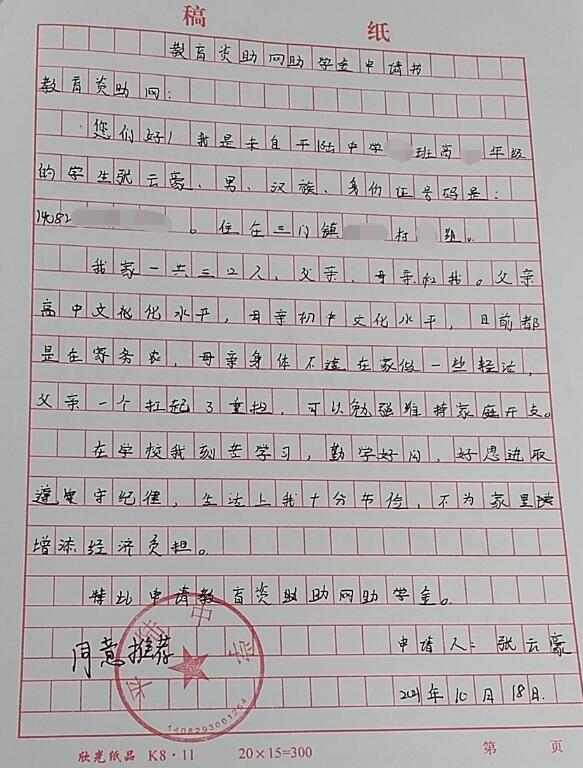 稿 纸
教育资助网助学金申请书
教育资助网：
您们好！我是来自平陆中学 班高 年级
的学生张云豪、男、汉族、身份证号码是：
14082 。住在三门镇 村 组。
我家一共三口人，父亲、母亲和我。父亲
高中文化水平，母亲初中文化水平，目前都
是在家务农，母亲身体不适在家做一些轻活，
父亲一个扛起了重担，可以勉强维持家庭开支。
在学校我刻苦学习，勤学好问，好思进取
遵守纪律，生活上我十分节俭，不为家里
增添经济负担。
特此申请教育资助网助学金。
同意推荐
申请人：张云豪
2021年10月18日.
1408293001254
欣光纸品 K8·11 20×15=300 第 页